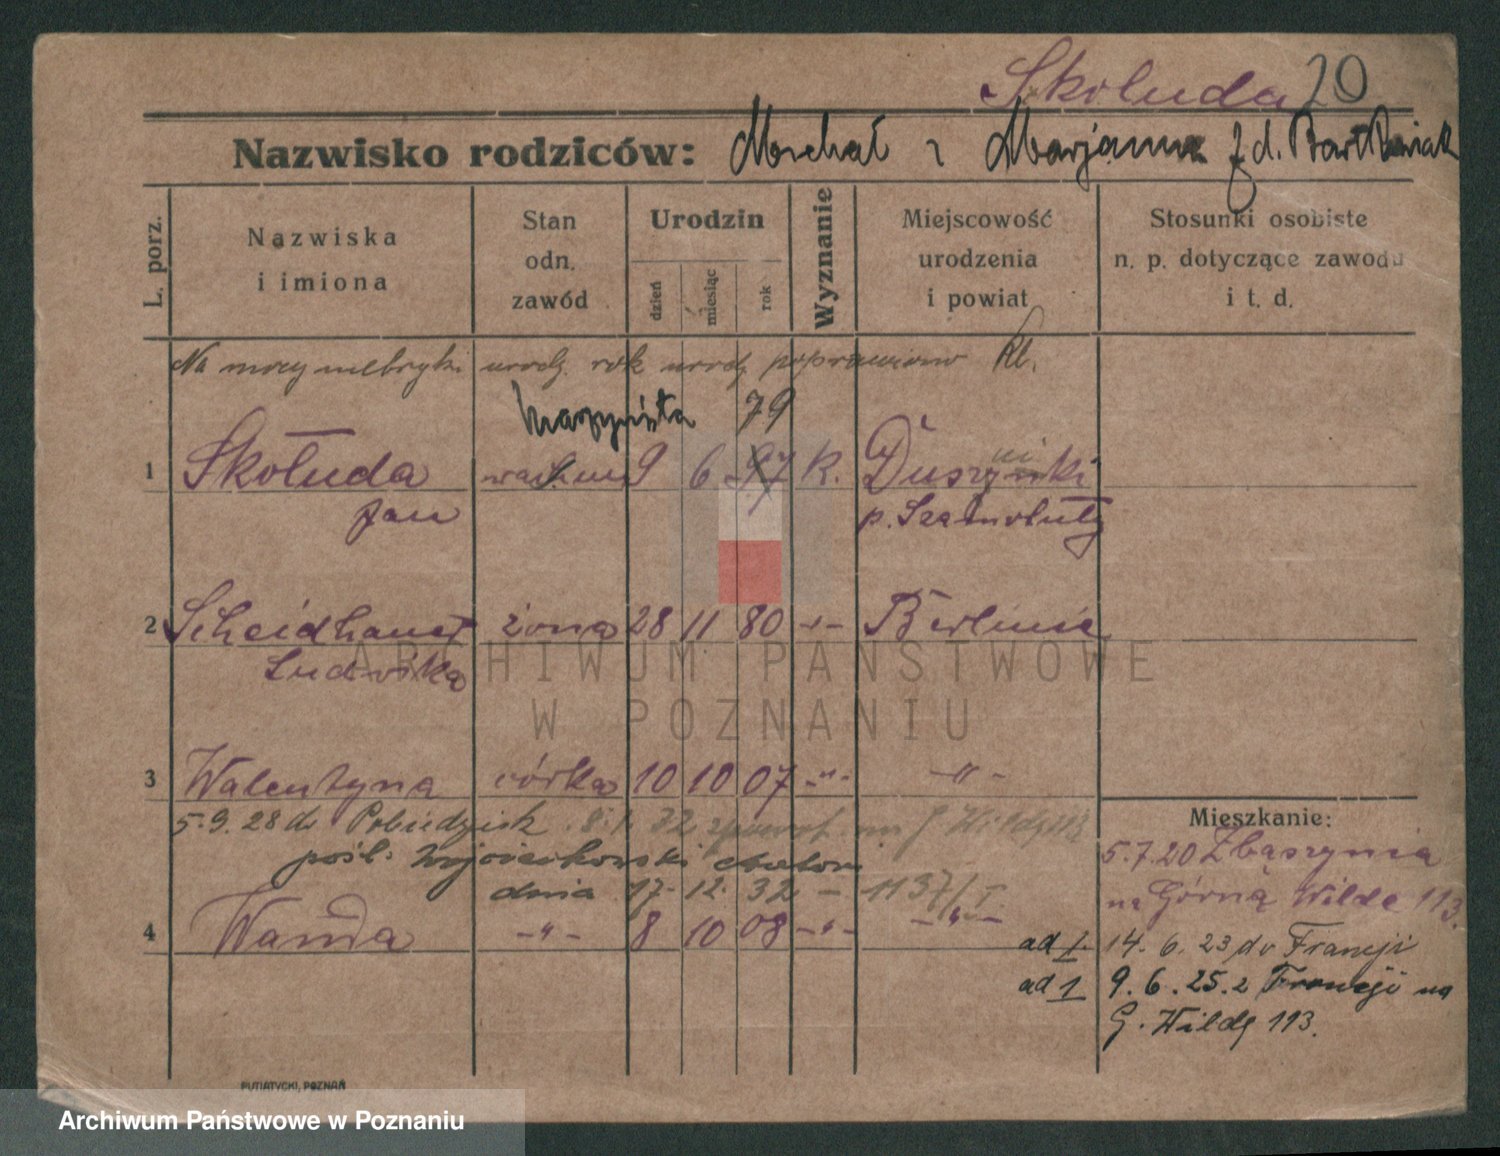 Skołuda 20
Nazwisko rodziców: Michał i Marjanna z d. Bartkowiak
L. porz.
Nazwiska i imiona
Stan odn. zawód
Urodzin
dzień
miesiąc
rok
Wyznanie
Miejscowość urodzenia i powiat
Stosunki osobiste n. p. dotyczące zawodu i t. d.
Na mocy metryki urodz. rok urodz poprawiono
maszynista 79
1 Skołuda 9 6 97 K. Duszniki
Jan p. Szamotuły
2 żona 28 11 80 -"- Berlinie
Ludwika
3 Walentyna córka 10 10 07 -"- -"-
5.9.28 do Pobiedzisk. 8.1.32 zpowrot na G Wildę 113
pośl. Wojciechowski
dnia 17. 12. 32 - 1137/I
4 Wanda -"- 8 10 08 -"- -"-
Mieszkanie:
5.7.20 Zbąszynia
na Górną Wilde 113.
ad 1. 14. 6. 23 do Francji
ad 1 9. 6. 25. z Francji na
G. Wildę 113.
PUTIATYCKI, POZNAŃ
ARCHIWUM PAŃSTWOWE
W POZNANIU
Archiwum Państwowe w Poznaniu